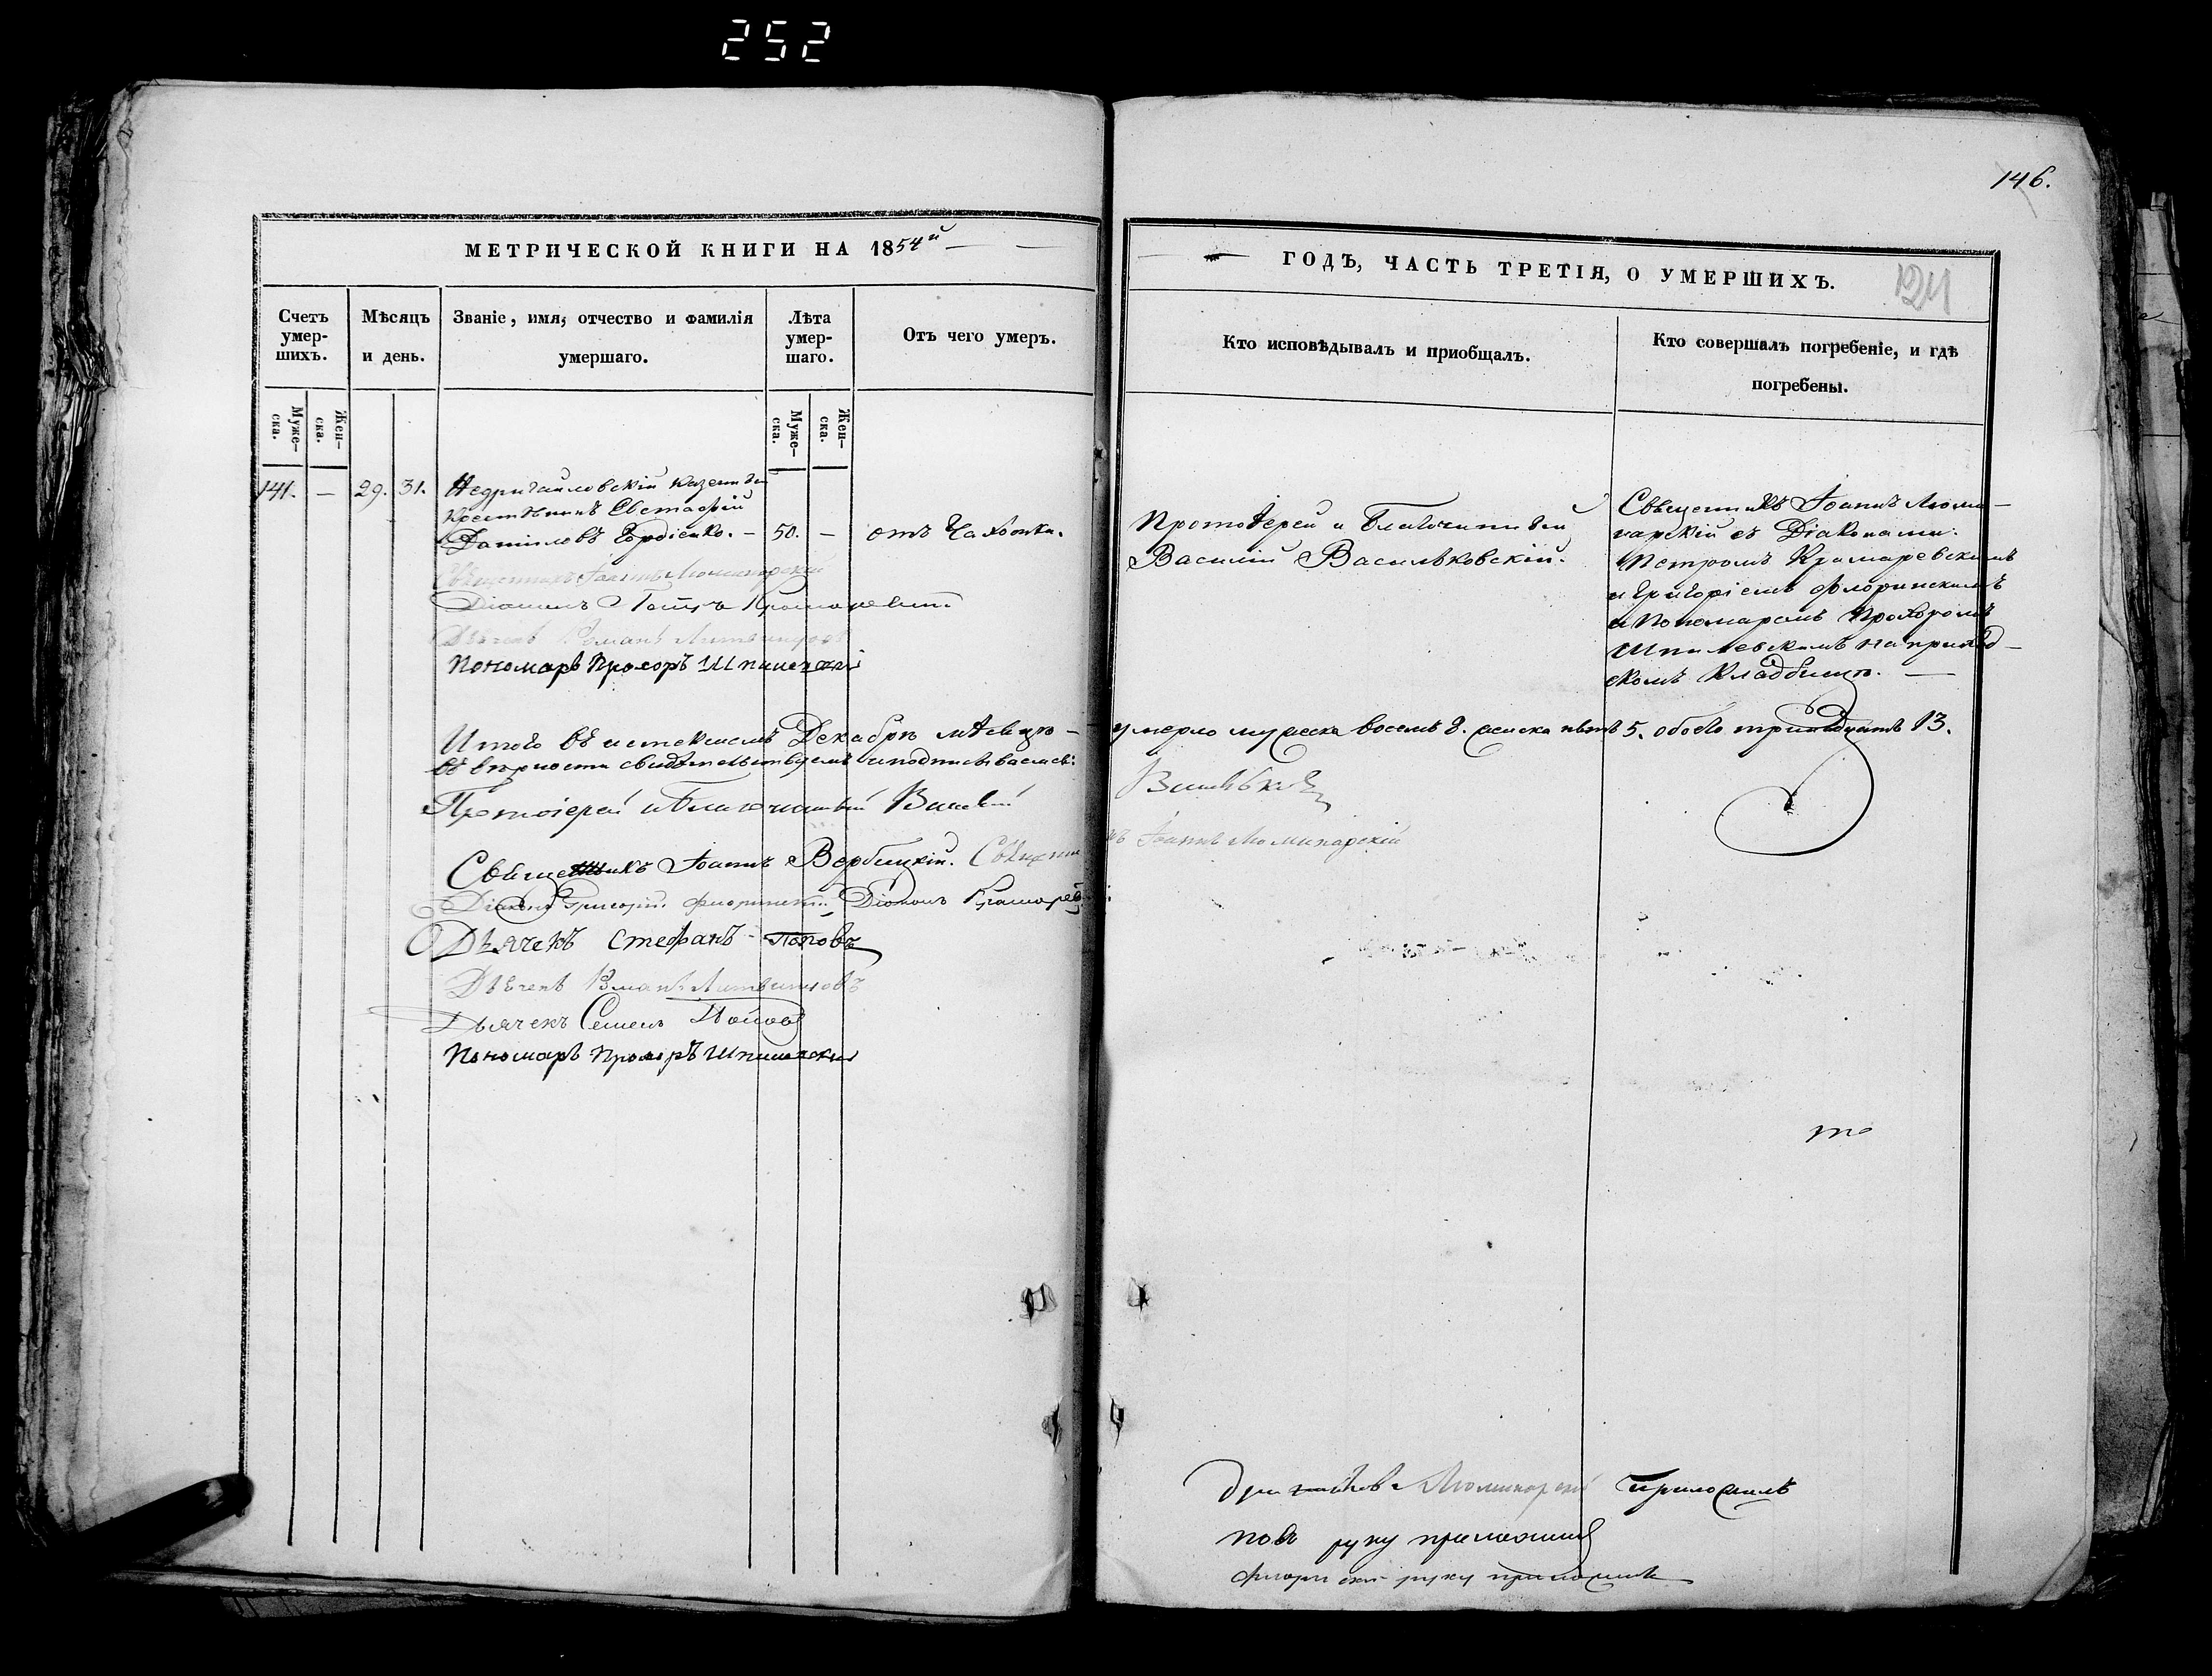 252
146.
МЕТРИЧЕСКОЙ КНИГИ НА 1854й
ГОДЪ, ЧАСТЬ ТРЕТІЯ, О УМЕРШИХЪ.
Счетъ умер-шихъ.
Мѣсяцъ и день.
Званіе, имя, отчество и фамилія умершаго.
Лѣта умер-шаго.
Отъ чего умеръ.
Кто исповѣдывалъ и пріобщалъ.
Кто совершалъ погребеніе, и гдѣ погребены.
Муже-ска.
Жен-ска.
Муже-ска.
Жен-ска.
141. — 29. 31. Недригайловскій казенный
крестьянинъ Евстафій
Даниловъ Гордіенко. — 50. — отъ Чахотки.
Протоіерей и Благочинный
Василій Васильковскій.
Священникъ Іоаннъ Люми-
нарскій съ Діаконами:
Петромъ Крамаревскимъ
и Григоріемъ Флоринскимъ
и Пономаремъ Прохоромъ
Шпилевскимъ на приход-
скомъ кладбищѣ. —
Священникъ Іоаннъ Люминарскій
Діаконъ Петръ Крамаревскій
Дьячекъ Романъ Литвиновъ
Пономарь Прохоръ Шпилевскій
Итого въ истекшемъ Декабрѣ мѣсяцѣ — умерло мужеска восемь 8. женска пять 5. обоего тринадцать 13.
въ вѣрности свидѣтельствуемъ и подписываемся:
Протоіерей и Благочинный Василій Васильковскій
Священникъ Іоаннъ Вербицкій. Священникъ Іоаннъ Люминарскій
Діаконъ Григорій Флоринскій Діаконъ Крамарев
Дьячекъ Стефанъ Поповъ
Дьячекъ Романъ Литвиновъ
Дьячекъ Семенъ Поповъ
Пономарь Прохоръ Шпилевскій
то
Люминарскій приложилъ
повъ руку приложилъ
Флоринскій руку приложилъ